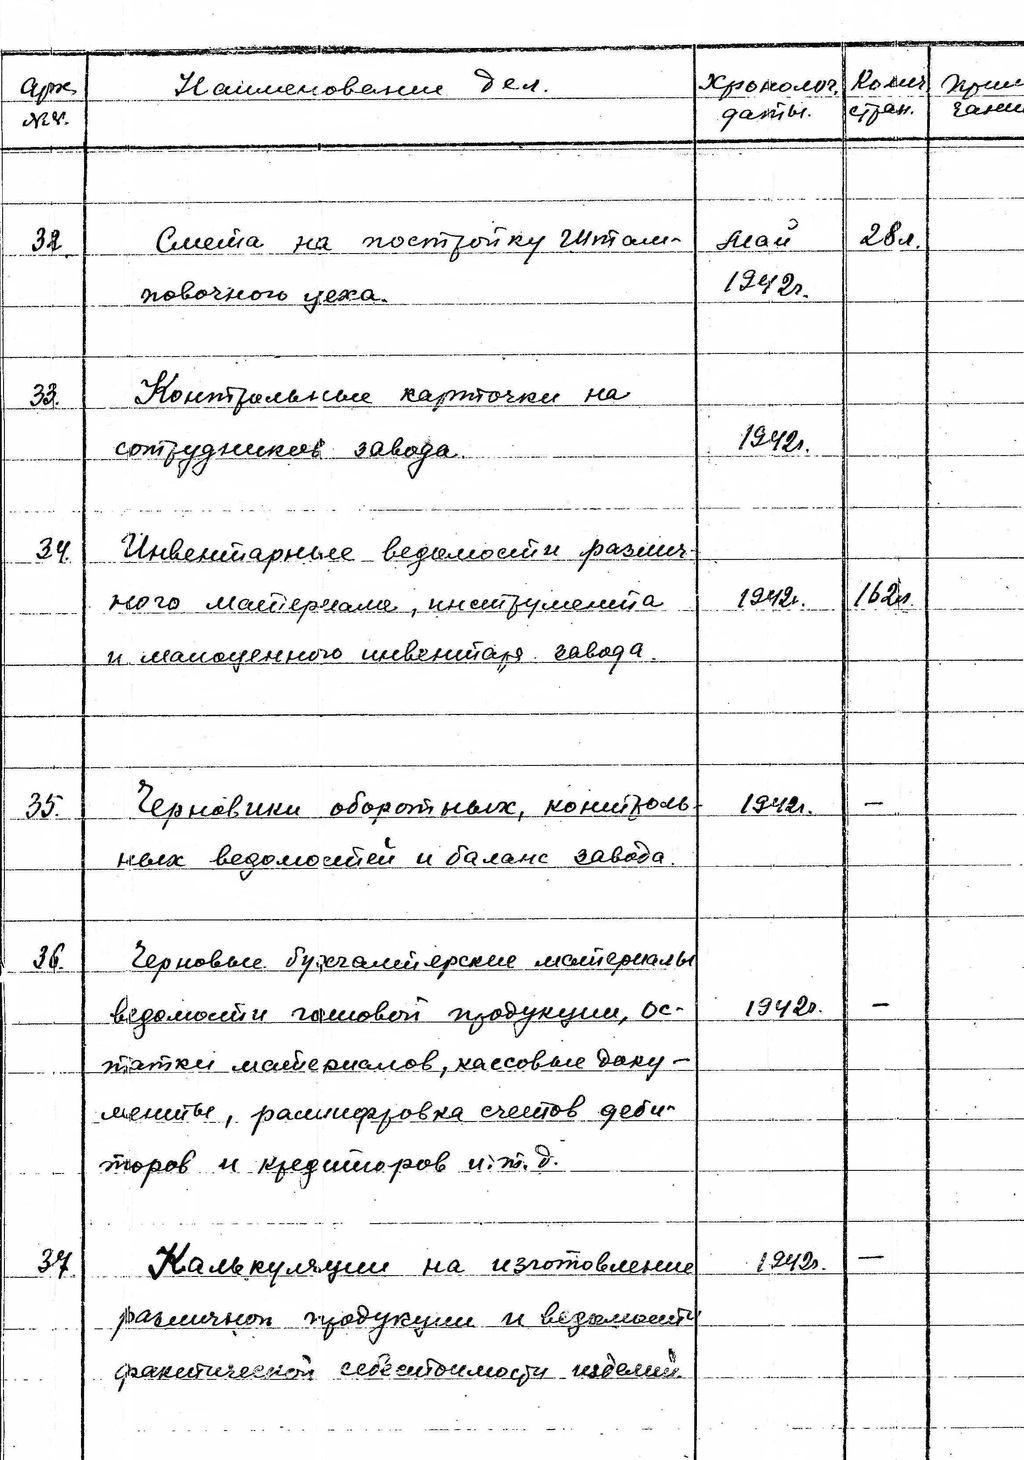 Арх. Наименование дел. Хронолог. Колич. Приме
№№. даты. стран. чание
32. Смета на постройку Штам- Май 28л.
повочного цеха. 1942г.
33. Контрольные карточки на
сотрудников завода. 1942г.
34. Инвентарные ведомости различ-
ного материала, инструмента 1942г. 162л.
и малоценного инвентаря завода.
35. Черновики оборотных, контроль- 1942г. —
ных ведомостей и баланс завода.
36. Черновые бухгалтерские материалы
ведомости готовой продукции, ос- 1942г. —
татки материалов, кассовые доку-
менты, расшифровка счетов деби-
торов и кредиторов и.т.д.
37. Калькуляции на изготовление 1942г. —
различной продукции и ведомости
фактической себестоимости изделий.